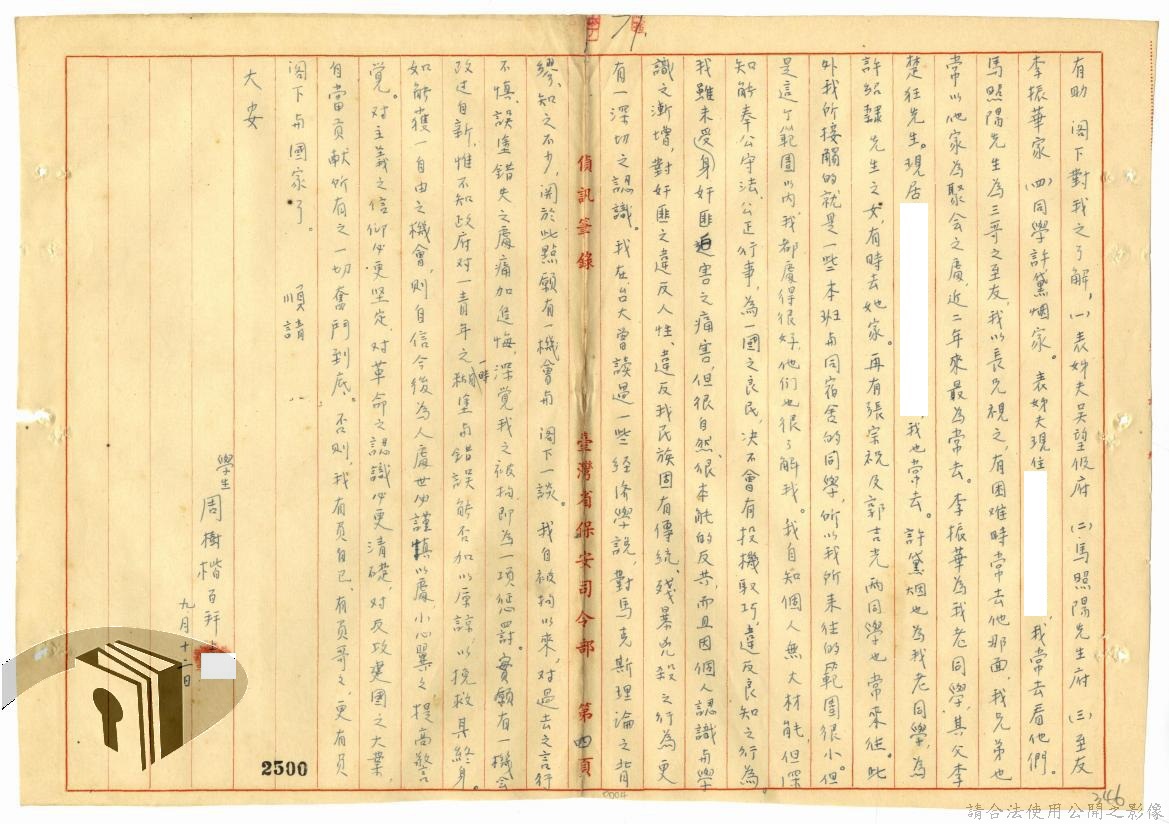 有助　閣下對我之了解，(一)表姊夫吳望伋府　(二)馬照陽先生府　(三)至友
李振華家　(四)同學許黛烟家。　表姊夫現住　　　，我常去看他們。
馬照陽先生為三哥之至友，我以長兄視之，有困難時常去他那面，我兄弟也
常以他家為聚会之處，近二年來最為常去。李振華為我老同學，其父李
楚狂先生。現居　　　，我也常去。許黛烟也為我老同學，為
許紹隸先生之女，有時去她家。再有張宗祝及郭吉光兩同學也常來往。此
外我所接觸的就是一些本班与同宿舍的同學，所以我所來往的範圍很小。但
是這个範圍以內，我都處得很好，他们也很了解我。我自知個人無大材能，但深
知能奉公守法，公正行事，為一國之良民，决不會有投機取巧，違反良知之行為。
我雖未(受身)奸匪迫害之痛害，但很自然、很本能的反共，而且因個人認識与學
識之漸增，對奸匪之違反人性、違反我民族固有傳統、殘暴兇殺之行為更
有一深切之認識。我在台大曾談過一些经济學説，對馬克斯理論之背
偵訊筆錄　臺灣省保安司令部　第四頁
繆，知之不少，関於此點願有一機會与　閣下一談。　我自被拘以來，对過去之言行
不慎，誤塗錯失之處痛加追悔，深覺我之被拘即為一項惩罸。實願有一機会
改过自新，惟不知政府对一青年之一時糊塗与錯誤能否加以原諒，以挽救其終身。
如能獲一自由之機會，則自信今後為人處世必謹慎以處，小心翼々，提高警
覚。对主義之信仰必更坚定，对革命之認識必更清礎，对反攻建國之大業，
自當貢献所有之一切奮鬥到底。否則，我有負自已、有負哥々、更有負
閣下与國家了。　順請
大安
學生　周樹楷百拜
九月十二日
2500
0004
346
請合法使用公開之影像